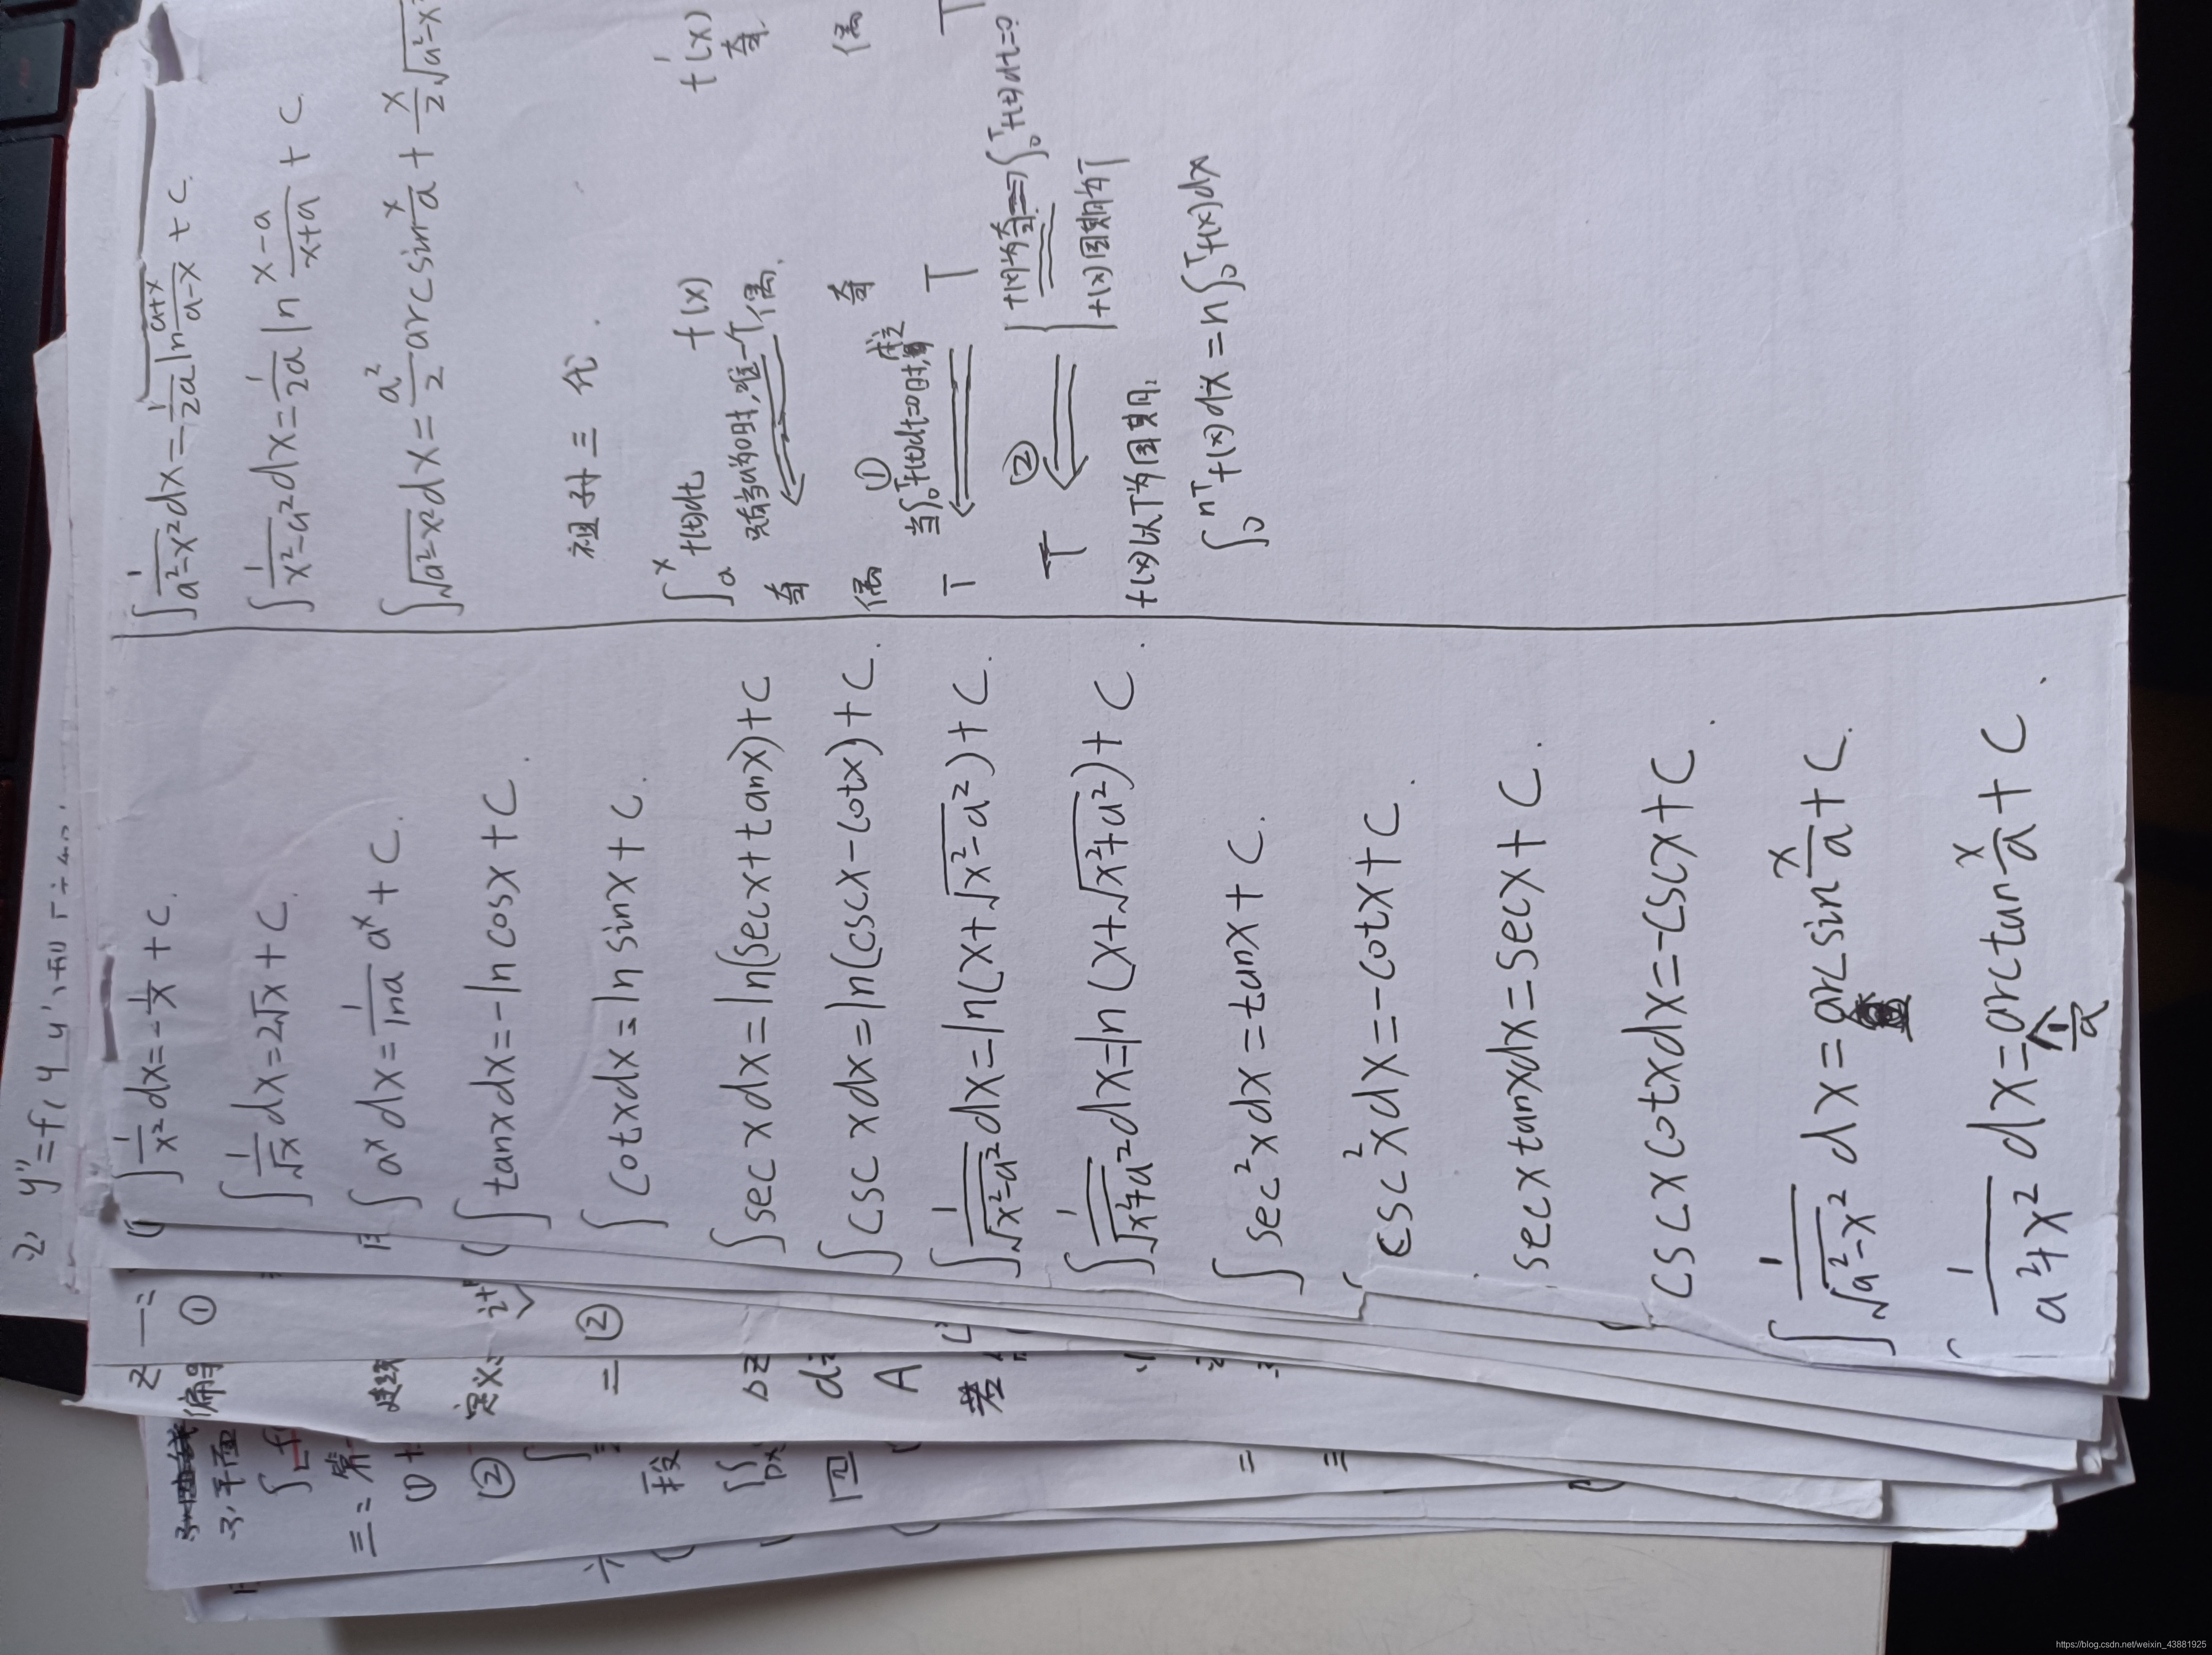 2) y''=f(y
∫ 1/x² dx = -1/x + C.
∫ 1/√x dx = 2√x + C.
∫ aˣ dx = 1/lna aˣ + C.
∫ tanx dx = -ln cosx + C.
∫ cotx dx = ln sinx + C.
∫ sec x dx = ln(secx + tanx) + C
∫ csc x dx = ln(cscx - cotx) + C.
∫ 1/√(x²-a²) dx = ln(x+√(x²-a²)) + C.
∫ 1/√(x²+a²) dx = ln(x+√(x²+a²)) + C.
∫ sec²x dx = tanx + C.
csc²x dx = -cotx + C.
secx tanx dx = secx + C.
cscx cotx dx = -cscx + C.
∫ 1/√(a²-x²) dx = arcsin x/a + C.
1/(a²+x²) dx = 1/a arctan x/a + C.
∫ 1/(a²-x²) dx = 1/2a ln (a+x)/(a-x) + C.
∫ 1/(x²-a²) dx = 1/2a ln (x-a)/(x+a) + C.
∫ √(a²-x²) dx = a²/2 arcsin x/a + x/2 √(a²-x²
祖孙三代.
∫ₐˣ f(t)dt f(x) f'(x)
奇 只有当a为0时,唯一个 偶. 奇.
偶 ① 奇 偶
T 当∫₀ᵀf(t)dt=0时,成立 T T
T ② { f(x)为奇 ⇒ ∫₀ᵀf(t)dt=0
f(x)周期为T
f(x)以T为周期:
∫₀ⁿᵀ f(x)dx = n∫₀ᵀ f(x)dx
Z 一:
偏导 ①
连续
② 定义
= ②
ΔZ
A
若
3、平面
三: 第一
①
②
https://blog.csdn.net/weixin_43881925